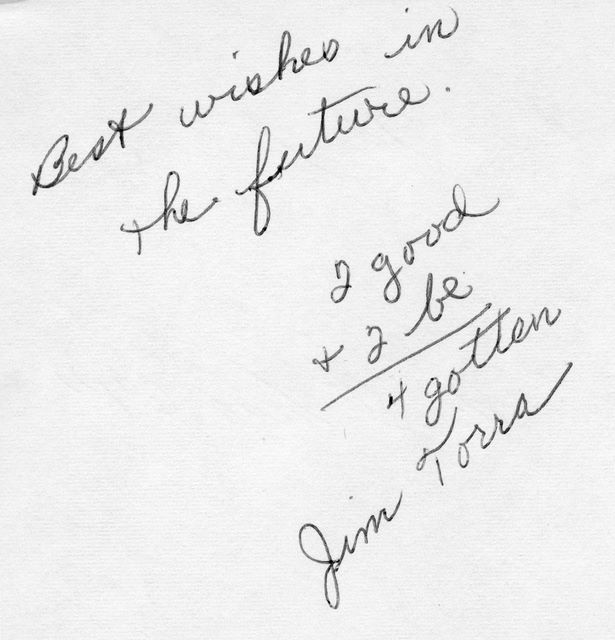 Best wishes in
the future.
2 good
+ 2 be
4 gotten
Jim Torra